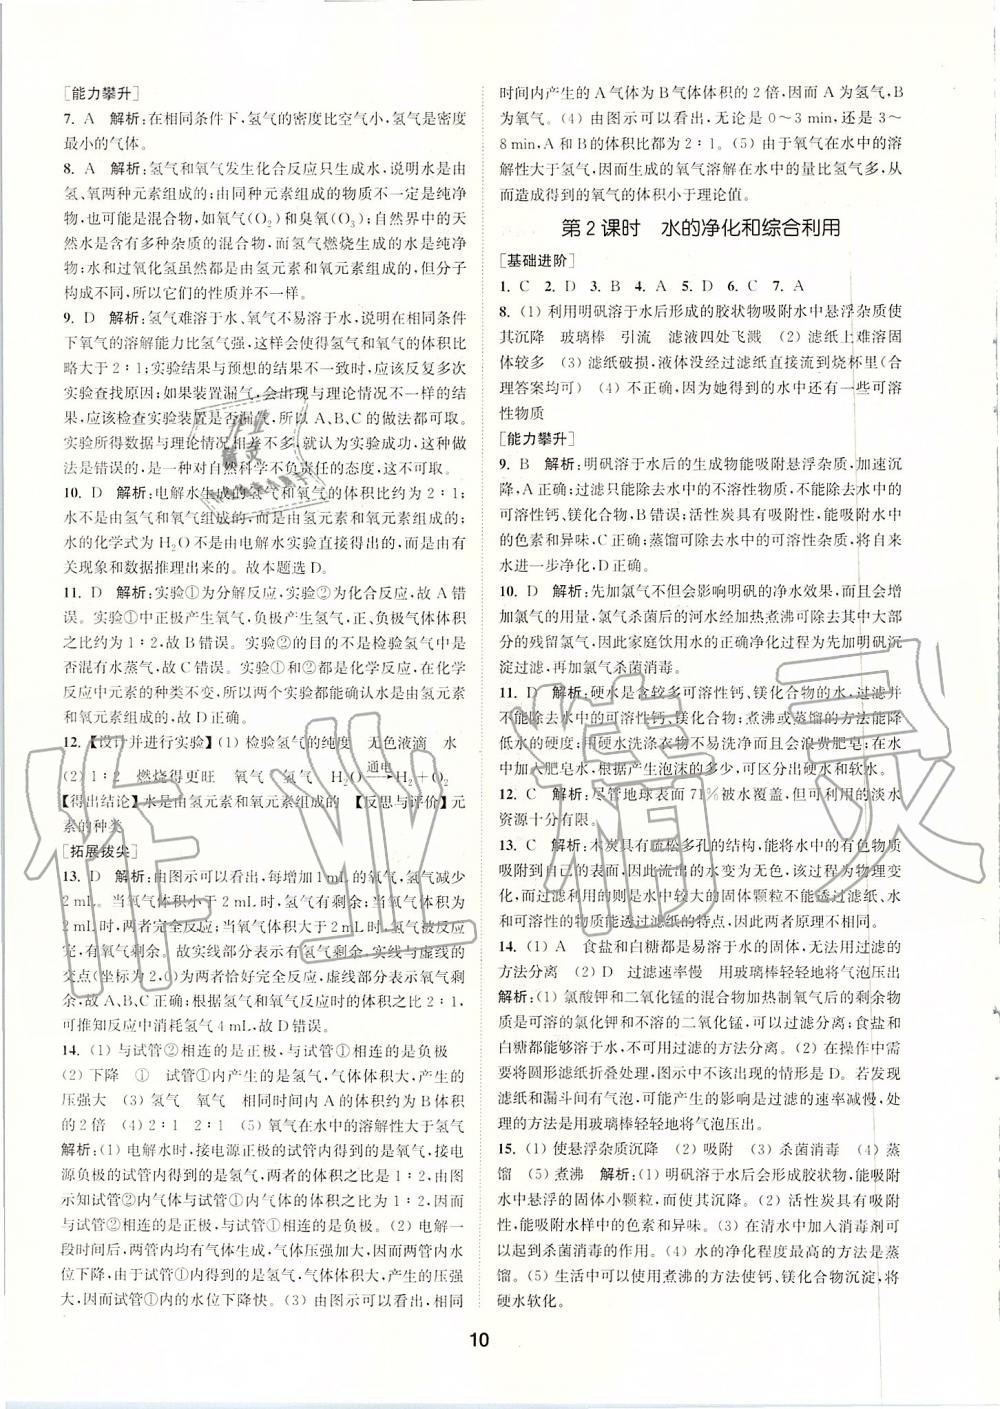 [能力攀升]
7. A 解析:在相同条件下,氢气的密度比空气小,氢气是密度
最小的气体。
8. A 解析:氢气和氧气发生化合反应只生成水,说明水是由
氢、氧两种元素组成的;由同种元素组成的物质不一定是纯净
物,也可能是混合物,如氧气(O₂)和臭氧(O₃);自然界中的天
然水是含有多种杂质的混合物,而氢气燃烧生成的水是纯净
物;水和过氧化氢虽然都是由氢元素和氧元素组成的,但分子
构成不同,所以它们的性质并不一样。
9. D 解析:氢气难溶于水、氧气不易溶于水,说明在相同条件
下氧气的溶解能力比氢气强,这样会使得氢气和氧气的体积比
略大于2∶1;实验结果与预想的不一致时,应该反复多次
实验查找原因;如果装置漏气,会出现与理论情况不一样的结
果,应该检查实验装置是否漏气,所以A、B、C的做法都可取。
实验所得数据与理论情况相差不多,就认为实验成功,这种做
法是错误的,是一种对自然科学不负责任的态度,这不可取。
10. D 解析:电解水生成的氢气和氧气的体积比约为2∶1;
水不是由氢气和氧气组成的,而是由氢元素和氧元素组成的;
水的化学式为H₂O不是由电解水实验直接得出的,而是由有
关现象和数据推理出来的。故本题选D。
11. D 解析:实验①为分解反应,实验②为化合反应,故A错
误。实验①中正极产生氧气,负极产生氢气,正、负极气体体积
之比约为1∶2,故B错误。实验②的目的不是检验氢气中是
否混有水蒸气,故C错误。实验①②都是化学反应,在化学反
应中元素的种类不变,所以两个实验都能说明水是由氢元素
和氧元素组成的,故D正确。
12.【设计并进行实验】(1) 检验氢气的纯度 无色液滴 水
(2) 1∶2 燃烧得更旺 氧气 氢气 H₂O 通电→ H₂+O₂
【得出结论】水是由氢元素和氧元素组成的 【反思与评价】元
素的种类
[拓展拔尖]
13. D 解析:由图示可以看出,每增加1 mL的氧气,氢气减少
2 mL。当氧气体积小于2 mL时,氢气有剩余;当氧气体积为
2 mL时,两者完全反应;当氧气体积大于2 mL时,氢气被反应
完,有氧气剩余。故实线部分表示氢气剩余,实线与虚线的
交点(坐标为2,0)为两者恰好完全反应,虚线部分表示氧气剩
余,故A、B、C正确;根据氢气和氧气反应时的体积之比2∶1,
可推知反应中消耗氢气4 mL,故D错误。
14. (1) 与试管②相连的是正极,与试管①相连的是负极
(2) 下降 ① 试管①内产生的是氢气,气体体积大,产生的
压强大 (3) 氢气 氧气 相同时间内A的体积约为B体积
的2倍 (4) 2∶1 2∶1 (5) 氧气在水中的溶解性大于氢气
解析:(1) 电解水时,接电源正极的试管内得到的是氧气,接电
源负极的试管内得到的是氢气,两者的体积之比是1∶2,由图
示知试管②内气体与试管①内气体的体积之比为1∶2,因而
与试管②相连的是正极,与试管①相连的是负极。(2) 电解一
段时间后,两管内均有气体生成,气体压强加大,故两管内水
位下降,由于试管①内的是氢气,气体体积大,产生的压强
大,因而试管①内的水位下降快。(3) 由图示可以看出,相同
时间内产生的A气体为B气体体积的2倍,因而A为氢气,B
为氧气。(4) 由图示可以看出,无论是0～3 min,还是3～
8 min,A和B的体积比均为2∶1。(5) 由于氧气在水中的溶
解性大于氢气,因而生成的氧气溶解在水中的量比氢气多,从
而造成得到的氧气的体积小于理论值。
第2课时 水的净化和综合利用
[基础进阶]
1. C 2. D 3. B 4. A 5. D 6. C 7. A
8. (1) 利用明矾溶于水后形成的胶状物吸附水中悬浮杂质使
其沉降 玻璃棒 引流 滤液四处飞溅 (2) 滤纸上难溶固
体较多 (3) 滤纸破损,液体没经过滤纸直接流到烧杯里(合
理答案均可) (4) 不正确,因为她得到的水中还有一些可溶
性物质
[能力攀升]
9. B 解析:明矾溶于水后的生成物能吸附悬浮杂质,加速沉
降,A正确;过滤只能除去水中的不溶性物质,不能除去水中
可溶性钙、镁化合物,B错误;活性炭具有吸附性,能除去水中
的色素和异味,C正确;蒸馏可除去水中的可溶性杂质,将自来
水进一步净化,D正确。
10. D 解析:先加氯气不但会影响明矾的净水效果,而且会增
加氯气的用量,氯气杀菌后的河水经加热煮沸可除去其中大部
分的残留氯气,因此家庭饮用水的正确净化过程为先加明矾沉
淀过滤,再加氯气杀菌消毒。
11. D 解析:硬水是含较多可溶性钙、镁化合物的水,过滤并
不能除去水中的可溶性钙、镁化合物;煮沸或蒸馏的方法能降
低水的硬度;用硬水洗涤衣物不易洗净而又会浪费肥皂;在水
中加入肥皂水,根据产生泡沫的多少,可区分出硬水和软水。
12. C 解析:尽管地球表面71%被水覆盖,但可利用的淡水
资源十分有限。
13. C 解析:木炭具有疏松多孔的结构,能将水中的有色物质
吸附到表面,因此流出来的水变为无色,该过程为物理变
化,而过滤利用的是水中较大的固体颗粒不能透过滤纸、水
和可溶性的物质能透过滤纸的特点,因此两者原理不相同。
14. (1) A 食盐和白糖都是易溶于水的固体,无法用过滤的
方法分离 (2) D 过滤速率慢 用玻璃棒轻轻地将气泡压出
解析:(1) 氯酸钾和二氧化锰的混合物加热制氧气后的剩余物
质是可溶的氯化钾和不溶的二氧化锰,可以过滤分离;食盐和
白糖都能够溶于水,不可用过滤的方法分离。(2) 在操作中需
要将圆形滤纸折叠处理,图示中不该出现的情形是D。若发现
滤纸和漏斗间有气泡,可能产生的影响是过滤的速率减慢,处
理的方法是用玻璃棒轻轻地将气泡压出。
15. (1) 使悬浮杂质沉降 (2) 吸附 (3) 杀菌消毒 (4) 蒸
馏 (5) 煮沸 解析:(1) 明矾溶于水后会形成胶状物,能吸附
水中悬浮的固体小颗粒,而使其沉降。(2) 活性炭具有吸附
性,能吸附水样中的色素和异味。(3) 在清水中加入消毒剂可
以起到杀菌消毒的作用。(4) 水的净化程度最高的方法是蒸
馏。(5) 生活中可以使用煮沸的方法使钙、镁化合物沉淀,将
硬水软化。
10
作业精灵